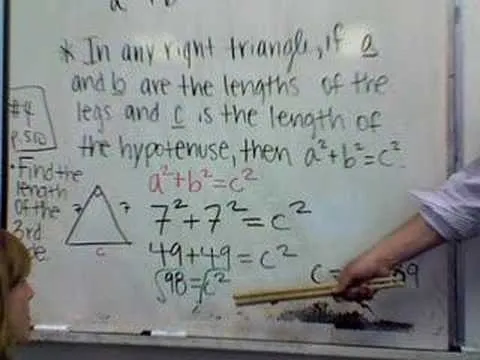 * In any right triangle, if a
and b are the lengths of the
legs and c is the length of
the hypotenuse, then a²+b²=c².
#4
p.550
• Find the
length
of the
3rd
a²+b²=c²
7 7
c
7²+7²=c²
49+49=c²
√98=√c²
c=